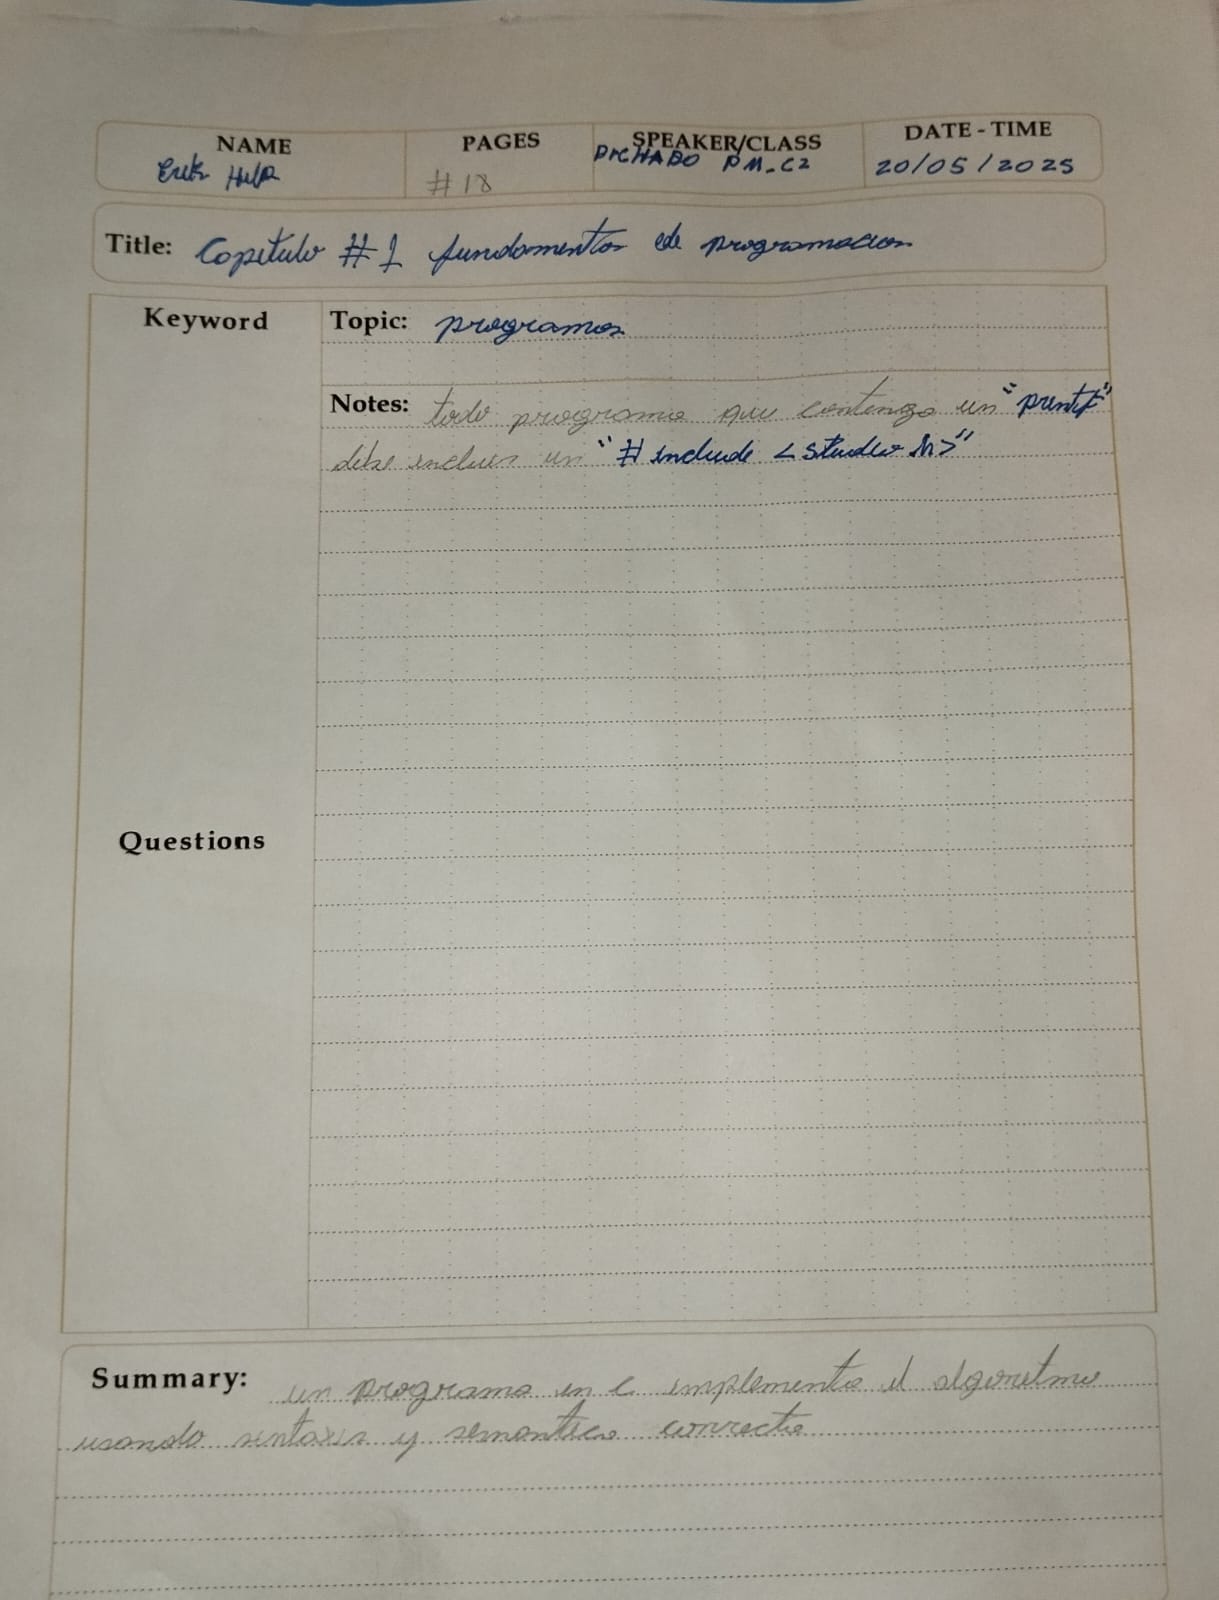 NAME PAGES SPEAKER/CLASS DATE - TIME
Erik #18 PICHARDO PM-C2 20/05/2025
Title: Capitulo #1 fundamentos de programacion
Keyword
Topic: programas
Notes: todo programa que contenga un "printf"
debe incluir un "# include < Studio h>"
Questions
Summary: un programa en c implementa el algoritmo
usando sintaxis y semantica correcta